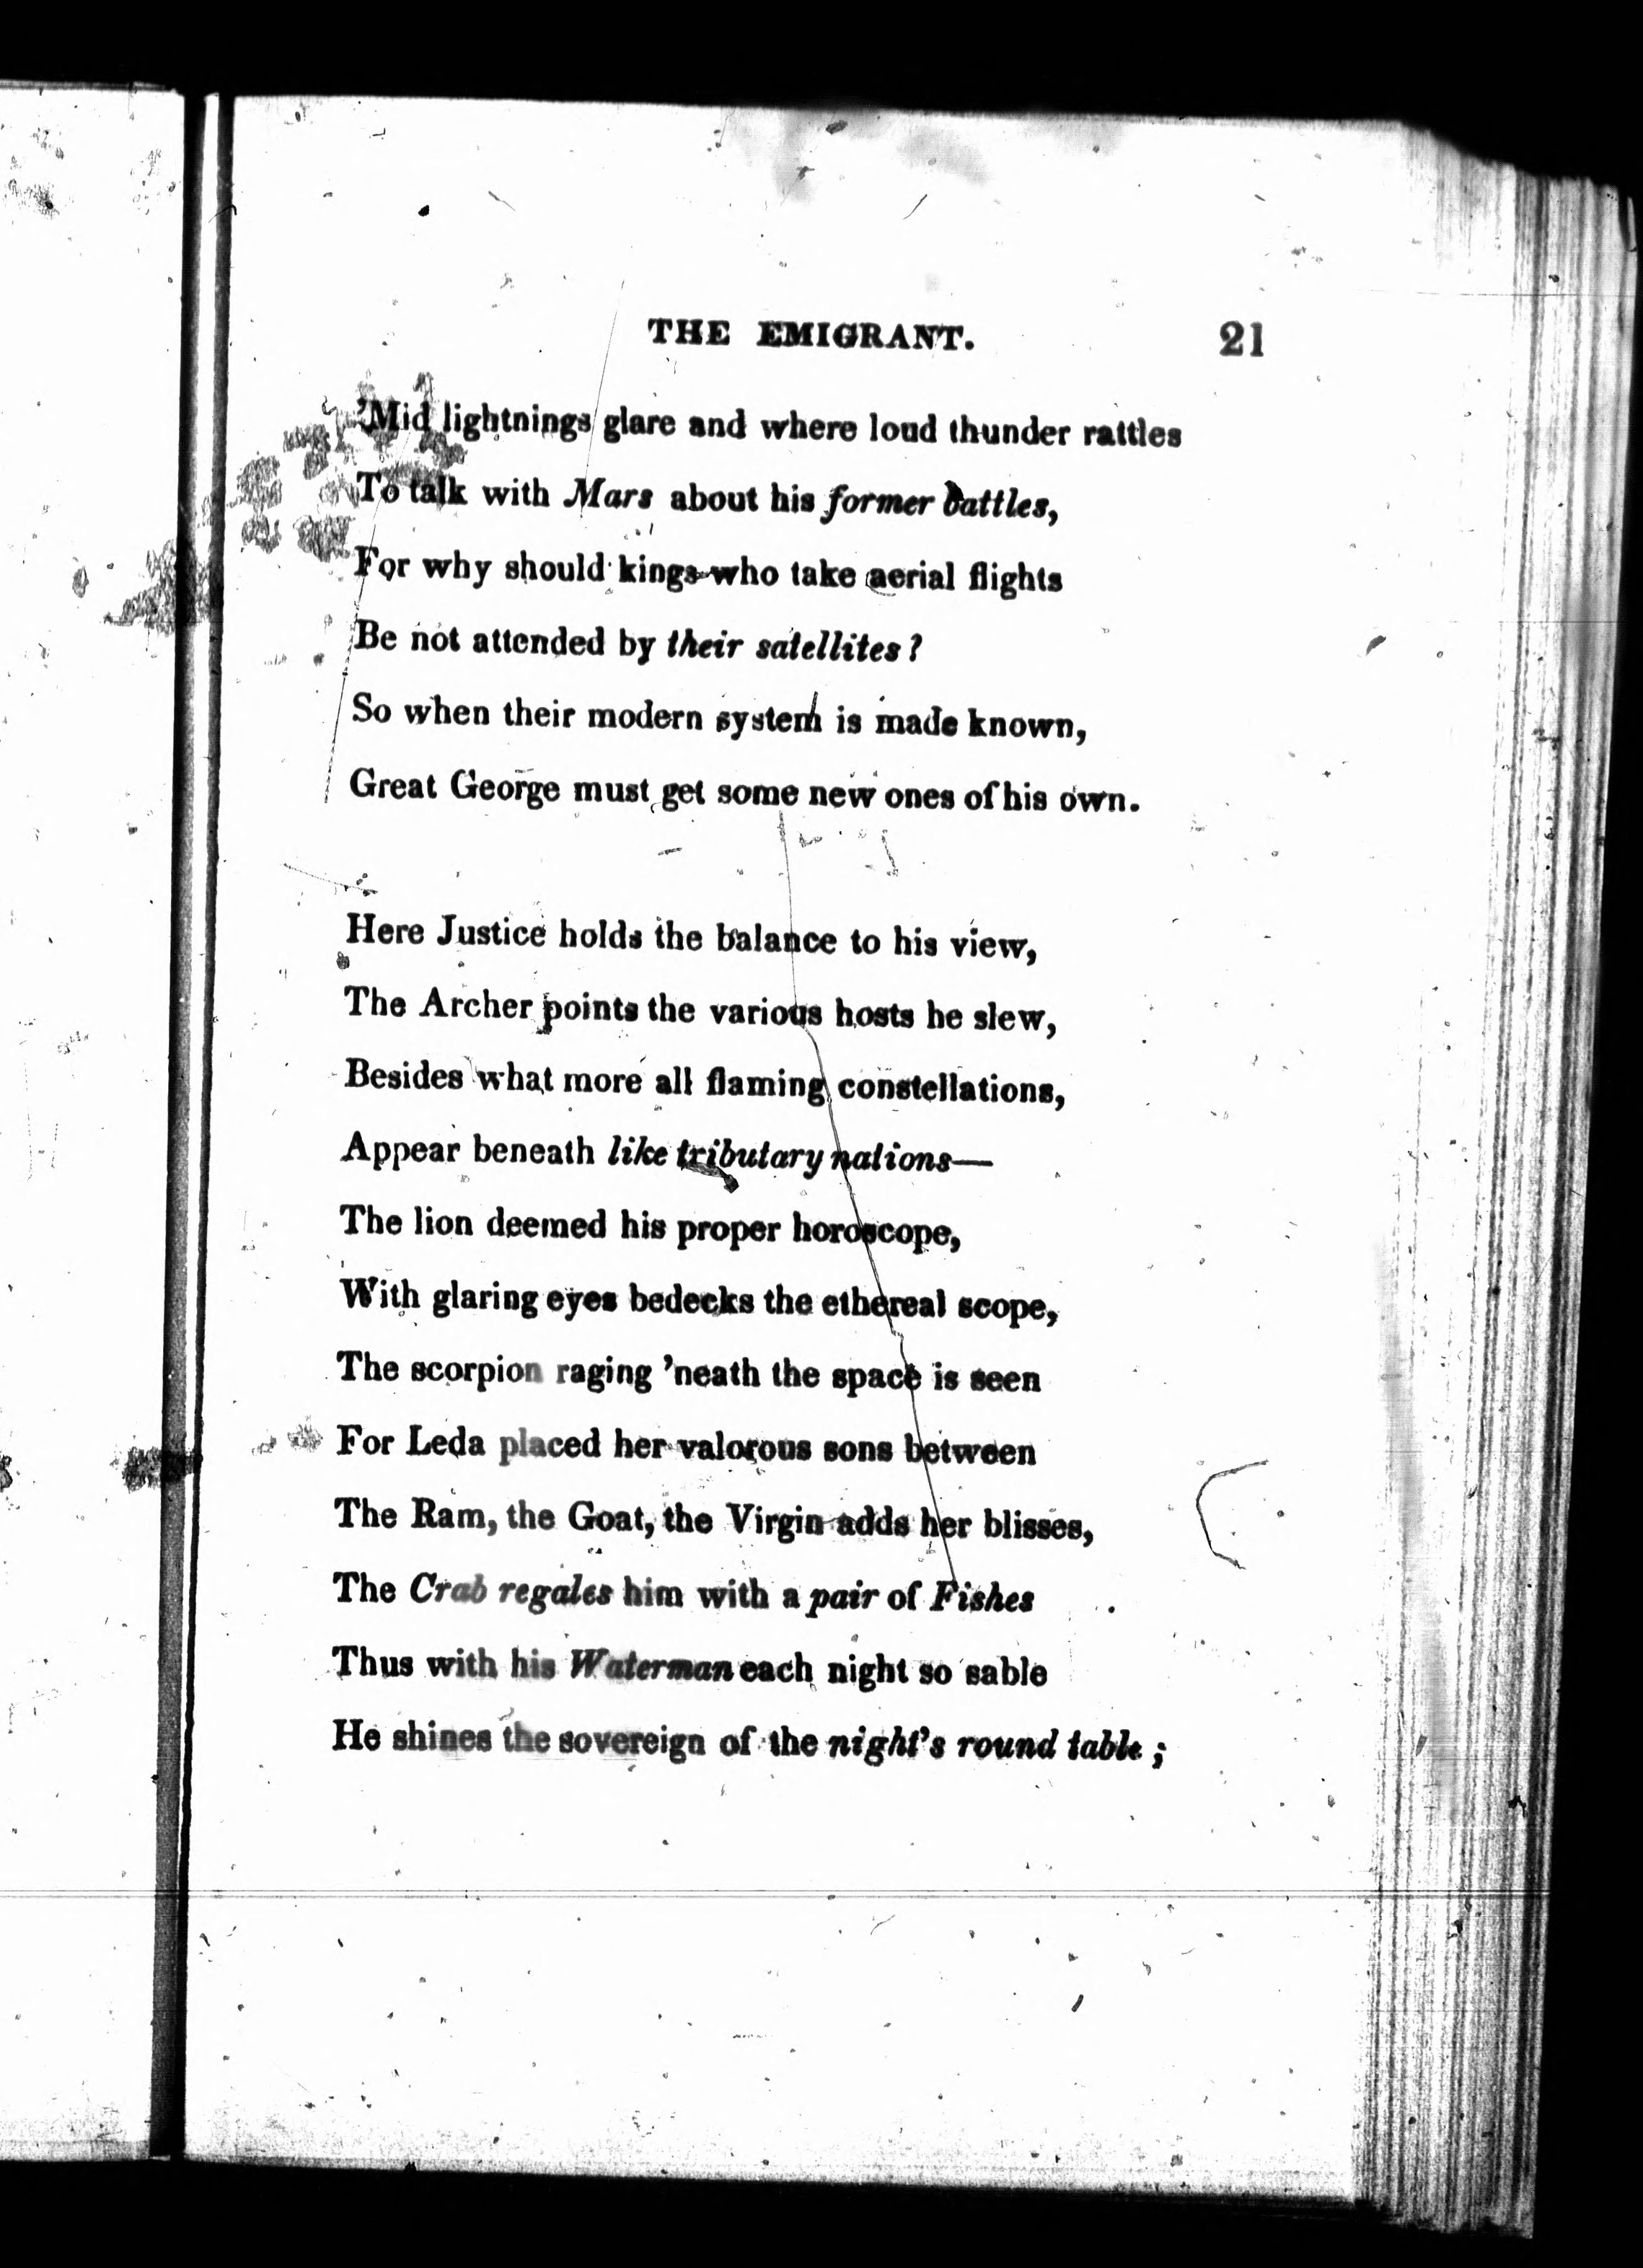 THE EMIGRANT. 21
'Mid lightnings glare and where loud thunder rattles
To talk with Mars about his former battles,
For why should kings who take aerial flights
Be not attended by their satellites?
So when their modern system is made known,
Great George must get some new ones of his own.
Here Justice holds the balance to his view,
The Archer points the various hosts he slew,
Besides what more all flaming constellations,
Appear beneath like tributary nations—
The lion deemed his proper horoscope,
With glaring eyes bedecks the ethereal scope,
The scorpion raging 'neath the space is seen
For Leda placed her valorous sons between
The Ram, the Goat, the Virgin adds her blisses,
The Crab regales him with a pair of Fishes
Thus with his Waterman each night so sable
He shines the sovereign of the night's round table;